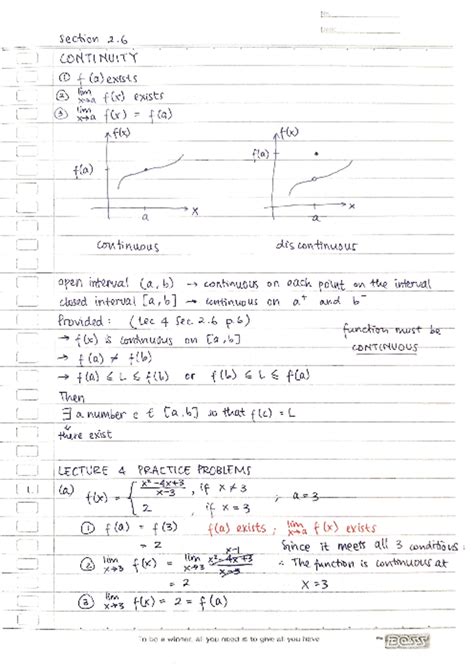 Section 2.6
CONTINUITY
① f(a) exists
② lim x→a f(x) exists
③ lim x→a f(x) = f(a)
f(x)
f(a)
x
a
continuous
f(x)
f(a)
x
a
discontinuous
open interval (a,b) → continuous on each point on the interval
closed interval [a,b] → continuous on a⁺ and b⁻
Provided : (Lec 4 Sec 2.6 p.6)
→ f(x) is continuous on [a,b]
function must be
CONTINUOUS
→ f(a) ≠ f(b)
→ f(a) ≤ L ≤ f(b) or f(b) ≤ L ≤ f(a)
Then
∃ a number c ∈ [a,b] so that f(c) = L
there exist
LECTURE 4 PRACTICE PROBLEMS
1. (a) f(x) = { x²-4x+3 / x-3 , if x ≠ 3
2 , if x = 3
; a=3
① f(a) = f(3)
= 2
f(a) exists ; lim x→a f(x) exists
Since it meets all 3 conditions:
② lim x→3 f(x) = lim x→3 x²-4x+3 / x-3
x-1
= 2
∴ The function is continuous at
x=3
③ lim x→3 f(x) = 2 = f(a)
To be a winner, all you need is to give all you have